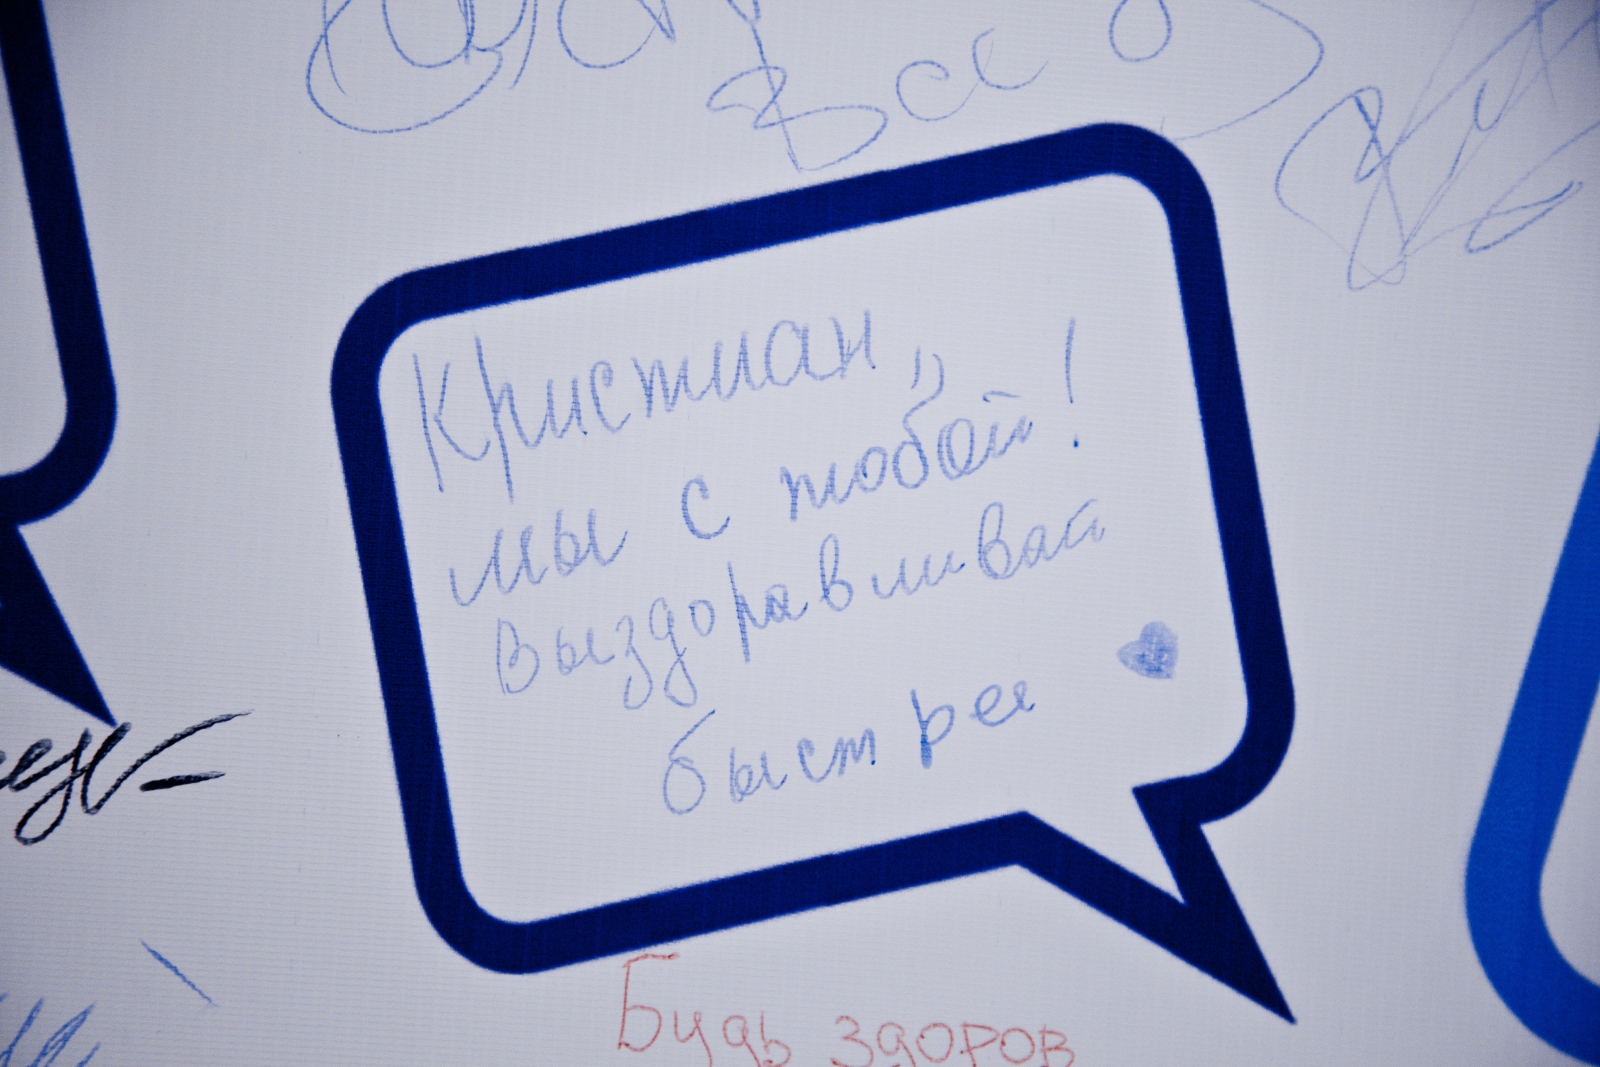 Кристиан,
мы с тобой!
Выздоравливай
быстрее
Будь здоров